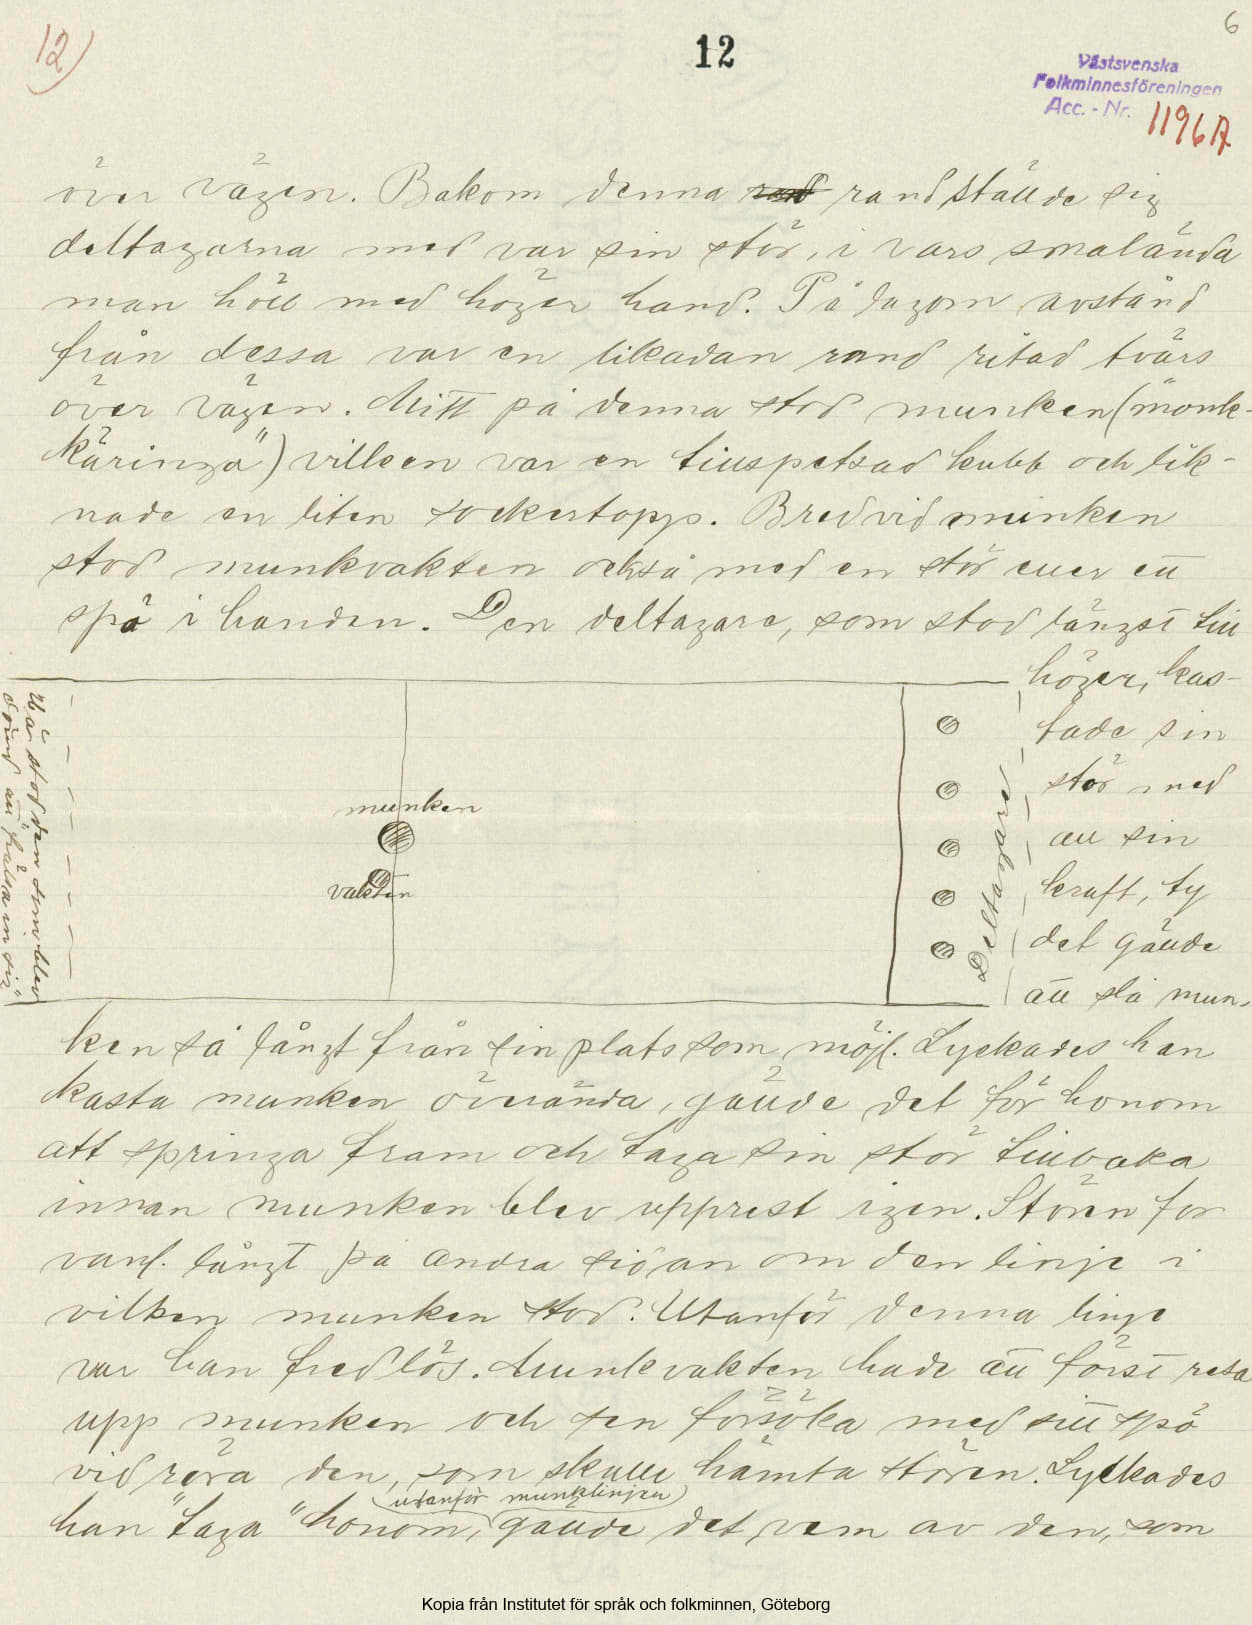 12)
12
6
Västsvenska
Folkminnesföreningen
Acc. - Nr. 1196 A
över vägen. Bakom denna rand ställde sig
deltagarna med var sin stör, i vars smalända
man höll med höger hand. På lagom avstånd
från dessa var en likadan rand ritad tvärs
över vägen. Mitt på denna stod munken (monk-
käringa") villken var en tillspetsad kubb och lik-
nade en liten sockertopp. Bredvid munken
stod munkvakten också med en stör eller ett
spö i handen. Den deltagare, som stod längst till
höger, kas-
tade sin
stör med
all sin
kraft, ty
det gällde
att slå mun-
munken
vakten
Deltagare
Här stod den som blev
dömd att "frälsa in sig"
ken så långt från sin plats som möjl. Lyckades han
kasta munken överända, gällde det för honom
att springa fram och taga sin stör tillbaka
innan munken blev upprest igen. Stören for
vanl. långt på andra sidan om den linje i
vilken munken stod. Utanför denna linje
var han fredlös. Munkvakten hade att först resa
upp munken och sen försöka med sitt spö
vidröra den, som skulle hämta stören. Lyckades
(utanför munklinjen)
han "taga" honom, gällde det vem av dem, som
Kopia från Institutet för språk och folkminnen, Göteborg